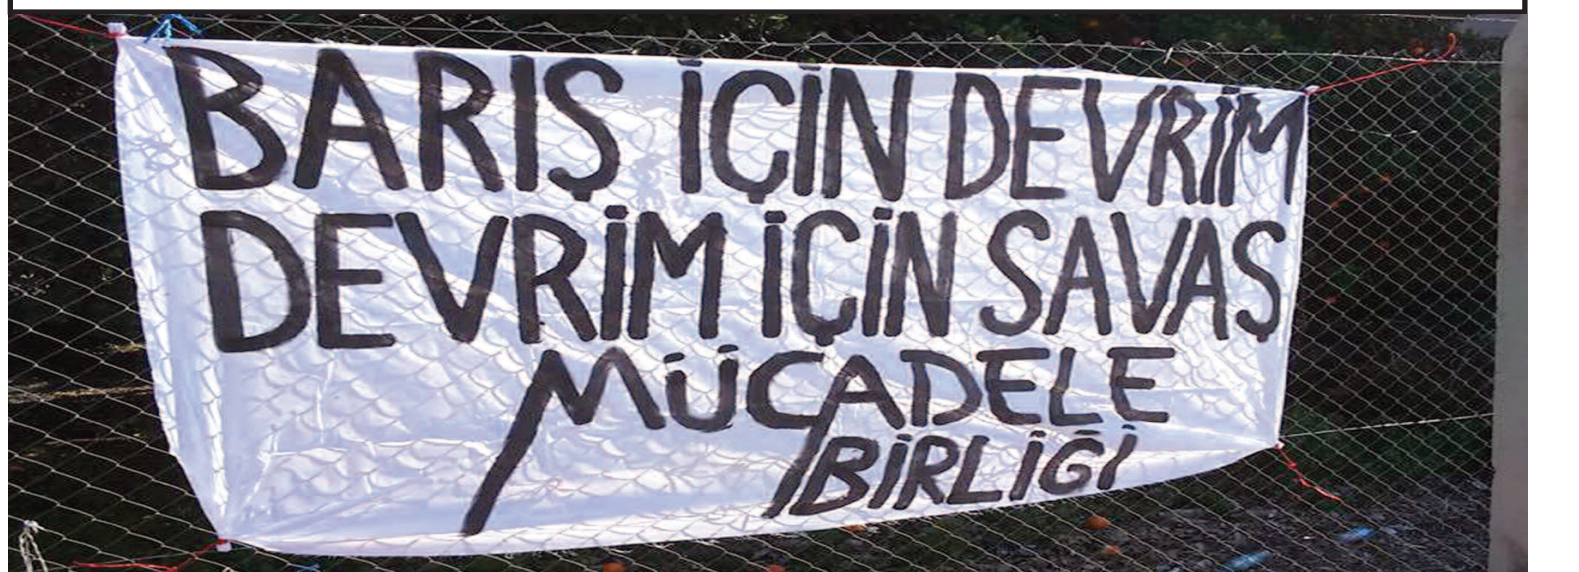 BARIŞ İÇİN DEVRİM
DEVRİM İÇİN SAVAŞ
MÜCADELE
BİRLİĞİ